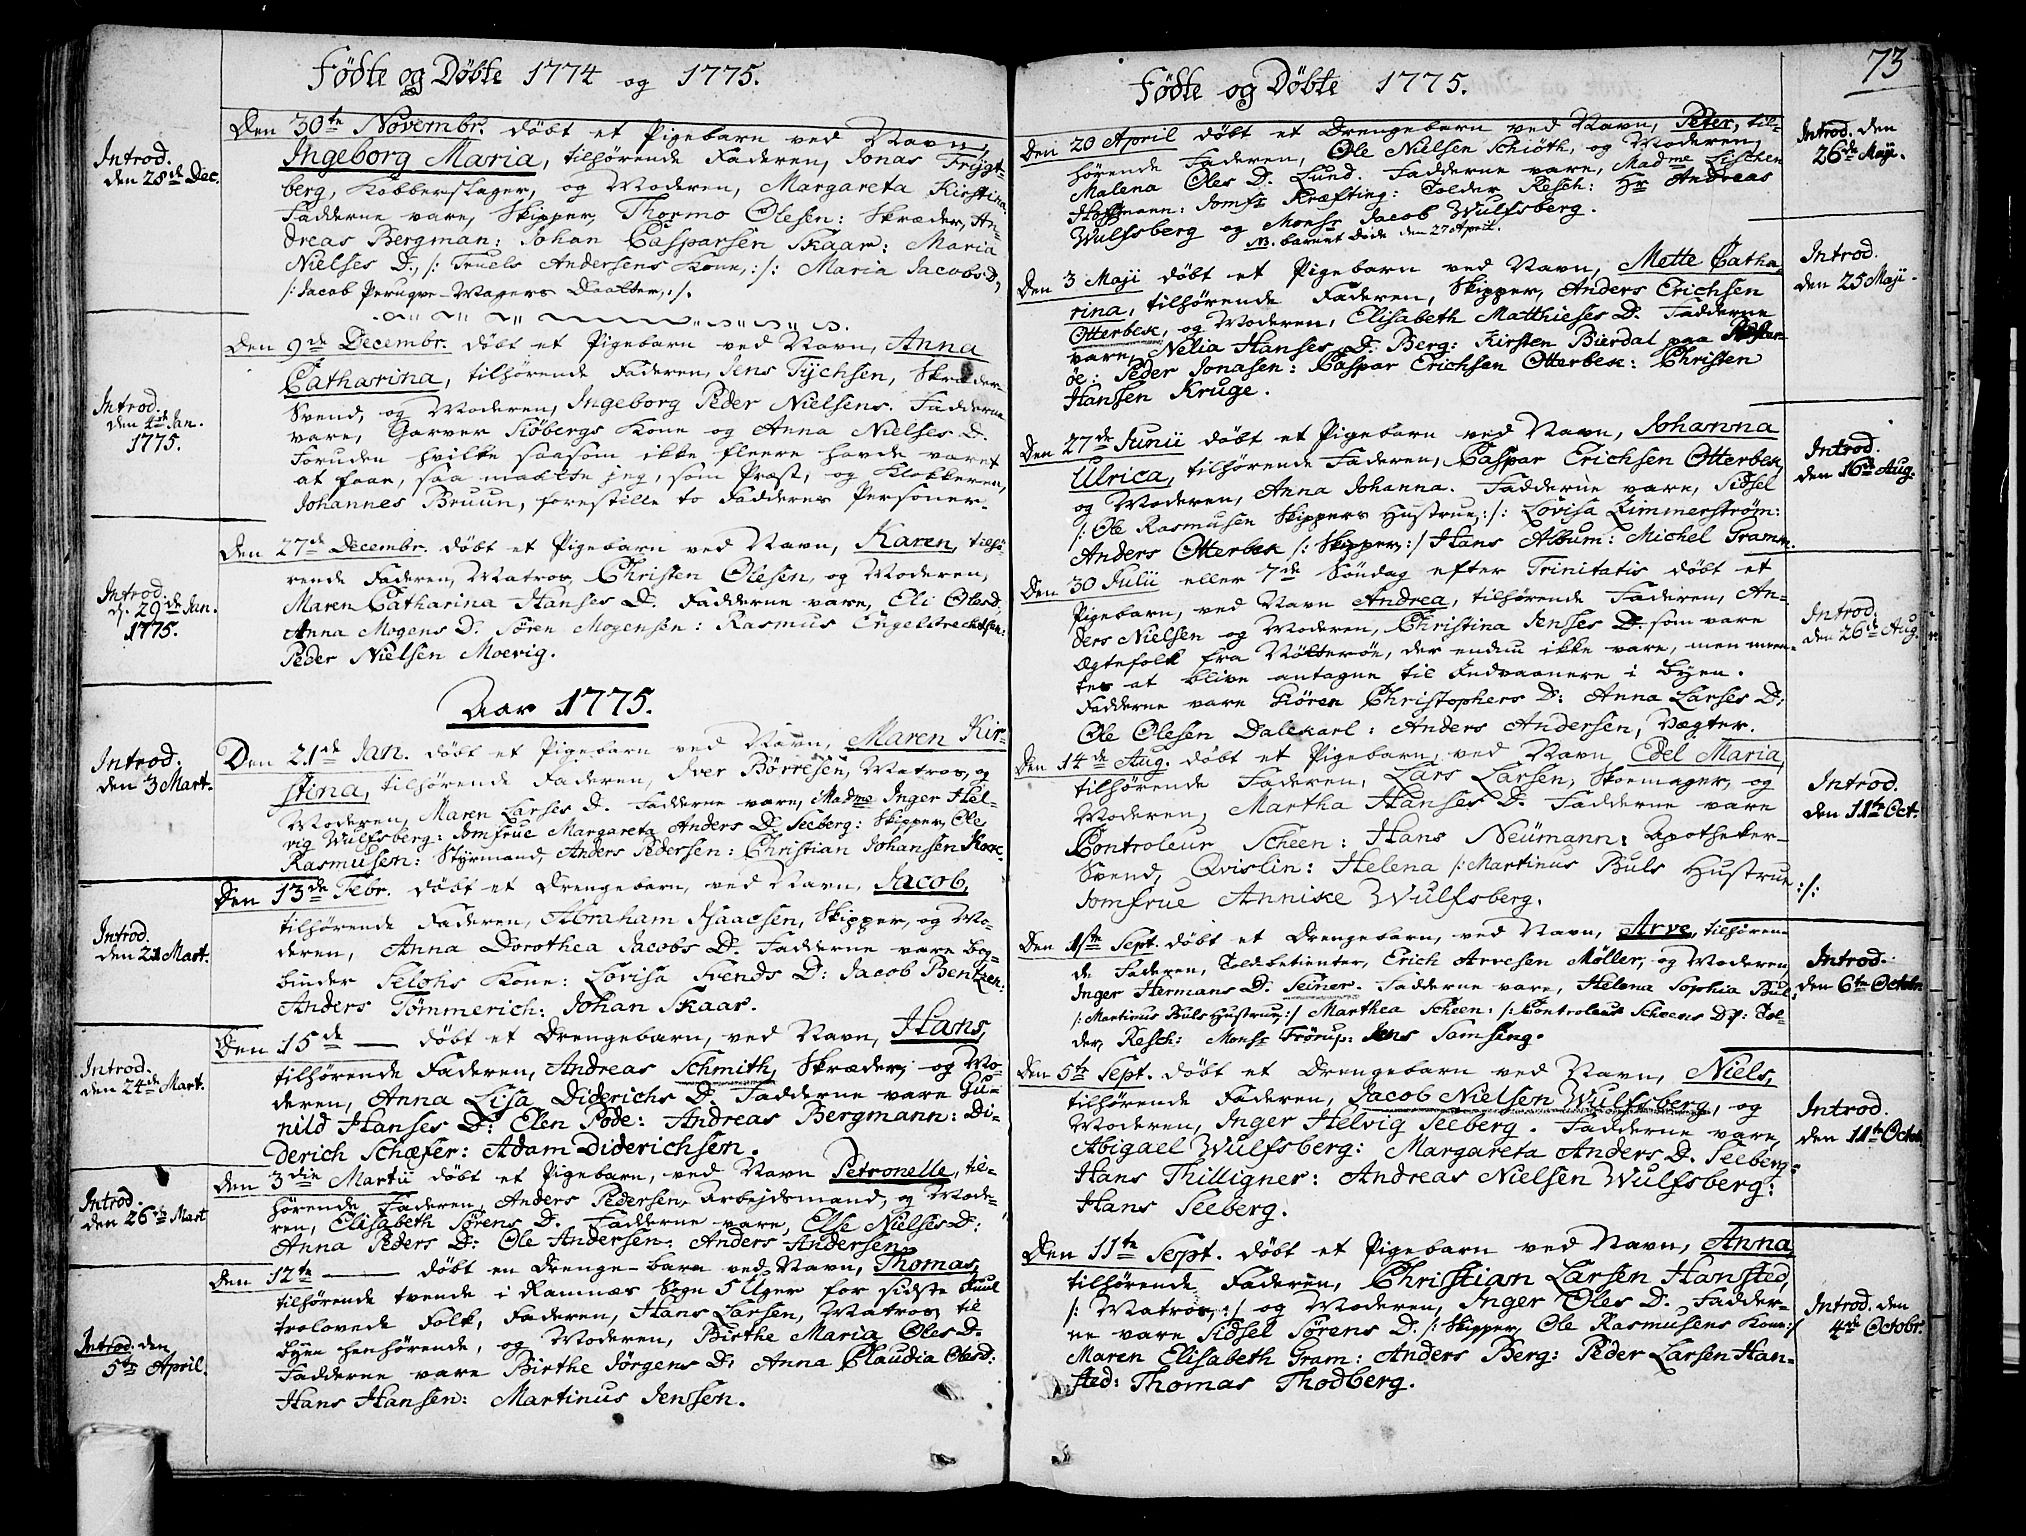 Födte og Döbte 1774 og 1775.
Introd.
den 28de Dec.
Den 30te Novembr. döbt et Pigebarn ved Navn,
Ingeborg Maria, tilhörende Faderen, Jonas Frygt-
berg, Kobberslager, og Moderen, Margareta Kirstina.
Fadderne vare, Skipper, Thormo Olesen: Skræder, An-
dreas Bergman: Johan Casparsen Skaar: Maria
Nielses D., /: Truels Andersens Kone, :/: Maria Jacobs D,
/: Jacob Peruqve-Magers Daatter, :/.
Introd.
den 4de Jan.
1775.
Den 9de Decembr. döbt et Pigebarn ved Navn, Anna
Catharina, tilhörende Faderen, Jens Tychsen, Skræder
Svend, og Moderen, Ingeborg Peder Nielsens. Fadderne
vare, Garver Siöbergs Kone og Anna Nielses D.
Foruden hvilke saasom ikke fleere havde været
at faae, saa maatte jeg, som Præst, og Klokkeren,
Johannes Bruun, forestille to Fadderes Personer.
Introd.
d. 29de Jan.
1775.
Den 27de Decembr. döbt et Pigebarn ved Navn, Karen, tilhö-
rende Faderen, Matros, Christen Olesen, og Moderen,
Maren Catharina Hanses D. Fadderne vare, Eli Olesd.
Anna Mogens D. Sören Mogensen: Rasmus Engelbrechtsen:
Peder Nielsen Moevig.
Aar 1775.
Introd.
den 3 Mart.
Den 21de Jan. döbt et Pigebarn ved Navn, Maren Kir-
stina, tilhörende Faderen, Iver Börresen, Matros, og
Moderen, Maren Larses D. Fadderne vare, Madme Inger Hel-
vig Wulfsberg: Jomfrue Margareta Anders D. Seeberg: Skipper, Ole
Rasmusen: Styrmand, Anders Pedersen: Christian Johansen Kock.
Introd.
den 21 Mart.
Den 13de Febr. döbt et Drengebarn, ved Navn, Jacob,
tilhörende Faderen, Abraham Isaacsen, Skipper, og Mo-
deren, Anna Dorothea Jacobs D. Fadderne vare Bog-
binder Selohs Kone: Lovisa Svends D: Jacob Bentzen:
Anders Tömmerich: Johan Skaar.
Introd.
den 24de Mart.
Den 15de — döbt et Drengebarn, ved Navn, Hans,
tilhörende Faderen, Andreas Schmith, Skræder, og Mo-
deren, Anna Lisa Diderichs D. Fadderne vare Gu-
nild Hanses D: Elen Pode: Andreas Bergmann: Di-
derich Schæfer: Adam Diderichsen.
Introd.
den 26de Mart
Den 3die Martii döbt et Pigebarn, ved Navn Petronelle, til-
hörende Faderen, Anders Pedersen, Arbejdsmand, og Mode-
ren, Elisabeth Sörens D. Fadderne vare, Else Nielses D:
Anna Peders D: Ole Andersen: Anders Andersen.
Introd. den
5te April.
Den 12te — döbt en Drenge-barn ved Navn, Thomas,
tilhörende tvende i Ramnæs Sogn 5 Uger for sidste Juul
trolovede Folk, Faderen, Hans Larsen, Matros, til
Byen henhörende, og Moderen, Birthe Maria Oles D.
Fadderne vare Birthe Jörgens D: Anna Claudia Olesd:
Hans Hansen: Martinus Jenssen.
73
Födte og Döbte 1775.
Den 20 April döbt et Drengebarn ved Navn, Peter, til-
hörende Faderen, Ole Nielsen Schiöth, og Moderen,
Malena Oles D. Lund. Fadderne vare, Madme Lischen
Hoffmann: Jomfr Kræfting: Tolder Resch: Hr Andreas
Wulfsberg og Monsr Jacob Wulfsberg.
NB. barnet döde den 27 April.
Introd. den
26de Maji.
Den 3 Maji döbt et Pigebarn ved Navn, Mette Catha-
rina, tilhörende Faderen, Skipper, Anders Erichsen
Otterbek, og Moderen, Elisabeth Matthieses D. Fadderne
vare, Nelia Hanses D. Berg: Kirsten Bierdal paa
öe: Peder Jonasen: Caspar Erichsen Otterbek: Christen
Hansen Kruge.
Introd.
den 25 Maji.
Den 27de Junii döbt et Pigebarn ved Navn, Johanna
Ulrica, tilhörende Faderen, Caspar Erichsen Otterbek,
og Moderen, Anna Johanna. Fadderne vare, Sidsel
/: Ole Rasmusen Skippers Hustrue, :/: Lovisa Zimmerström:
Anders Otterbek /: Skipper, :/ Hans Album: Michel Gramm.
Introd.
den 16de Aug.
Den 30 Julii eller 7de Söndag efter Trinitatis döbt et
Pigebarn, ved Navn Andrea, tilhörende Faderen, An-
ders Nielsen og Moderen, Christina Jenses D. som vare
Ægtefolk fra Nötteröe, der endnu ikke vare, men meen-
tes at blive antagne til Indvaanere i Byen.
Fadderne vare Sören Christophers D: Anna Larses D:
Ole Olesen Dalekarl: Anders Andersen, Vægter.
Introd.
den 26de Aug.
Den 14de Aug. döbt et Pigebarn, ved Navn Edel Maria,
tilhörende Faderen, Lars Larsen, Skoemager, og
Moderen, Martha Hanses D. Fadderne vare
Controleur Scheen: Hans Neümann: Apotheker-
Svend, Qvislin: Helena /: Martinus Buls Hustrue, :/:
Jomfrue Annike Wulfsberg.
Introd.
den 11te Oct.
Den 1ste Sept. döbt et Drengebarn, ved Navn, Arve, tilhören-
de Faderen, Toldbetienter, Erich Arvesen Möller, og Moderen,
Inger Hermans D. Seiner. Fadderne vare, Helena Sophia Bul-
/: Martinus Buls Hustrue, :/ Marthea Scheen: /: Controleurs Scheens D/: Tol-
der, Resch: Monsr Frörup: Jens Samsing.
Introd.
den 6te Octobr.
Den 5te Sept. döbt et Drengebarn ved Navn, Niels,
tilhörende Faderen, Jacob Nielsen Wulfsberg, og
Moderen, Inger Helvig Seeberg. Fadderne vare,
Abigael Wulfsberg: Margareta Anders D. Seeberg:
Hans Thilligner: Andreas Nielsen Wulfsberg:
Hans Seeberg.
Introd.
den 11te Octob.
Den 11te Sept. döbt et Pigebarn ved Navn, Anna,
tilhörende Faderen, Christian Larsen Hansted,
/: Matros, :/ og Moderen, Inger Oles D. Fadder-
ne vare Sidsel Sörens D. /: Skipper, Ole Rasmusens Kone :/
Maren Elisabeth Gram: Anders Berg: Peder Larsen Han-
sted: Thomas Thodberg.
Introd. den
4de Octobr.